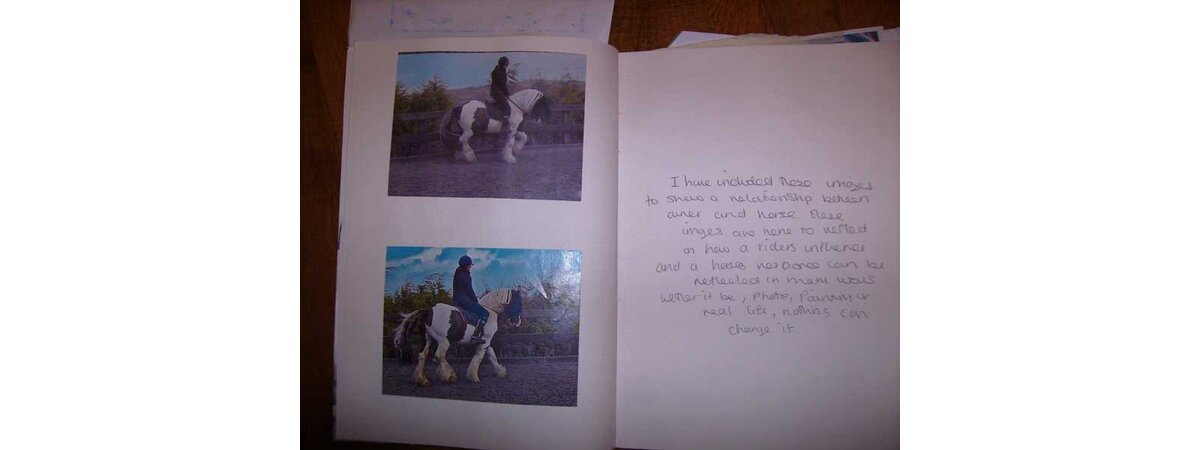 I have included these images
to show a relationship between
owner and horse. these
images are here to reflect
on how a riders influence
and a horses response can be
reflected in many ways
wether it be, photo, Painting or
real life, nothing can
change it.